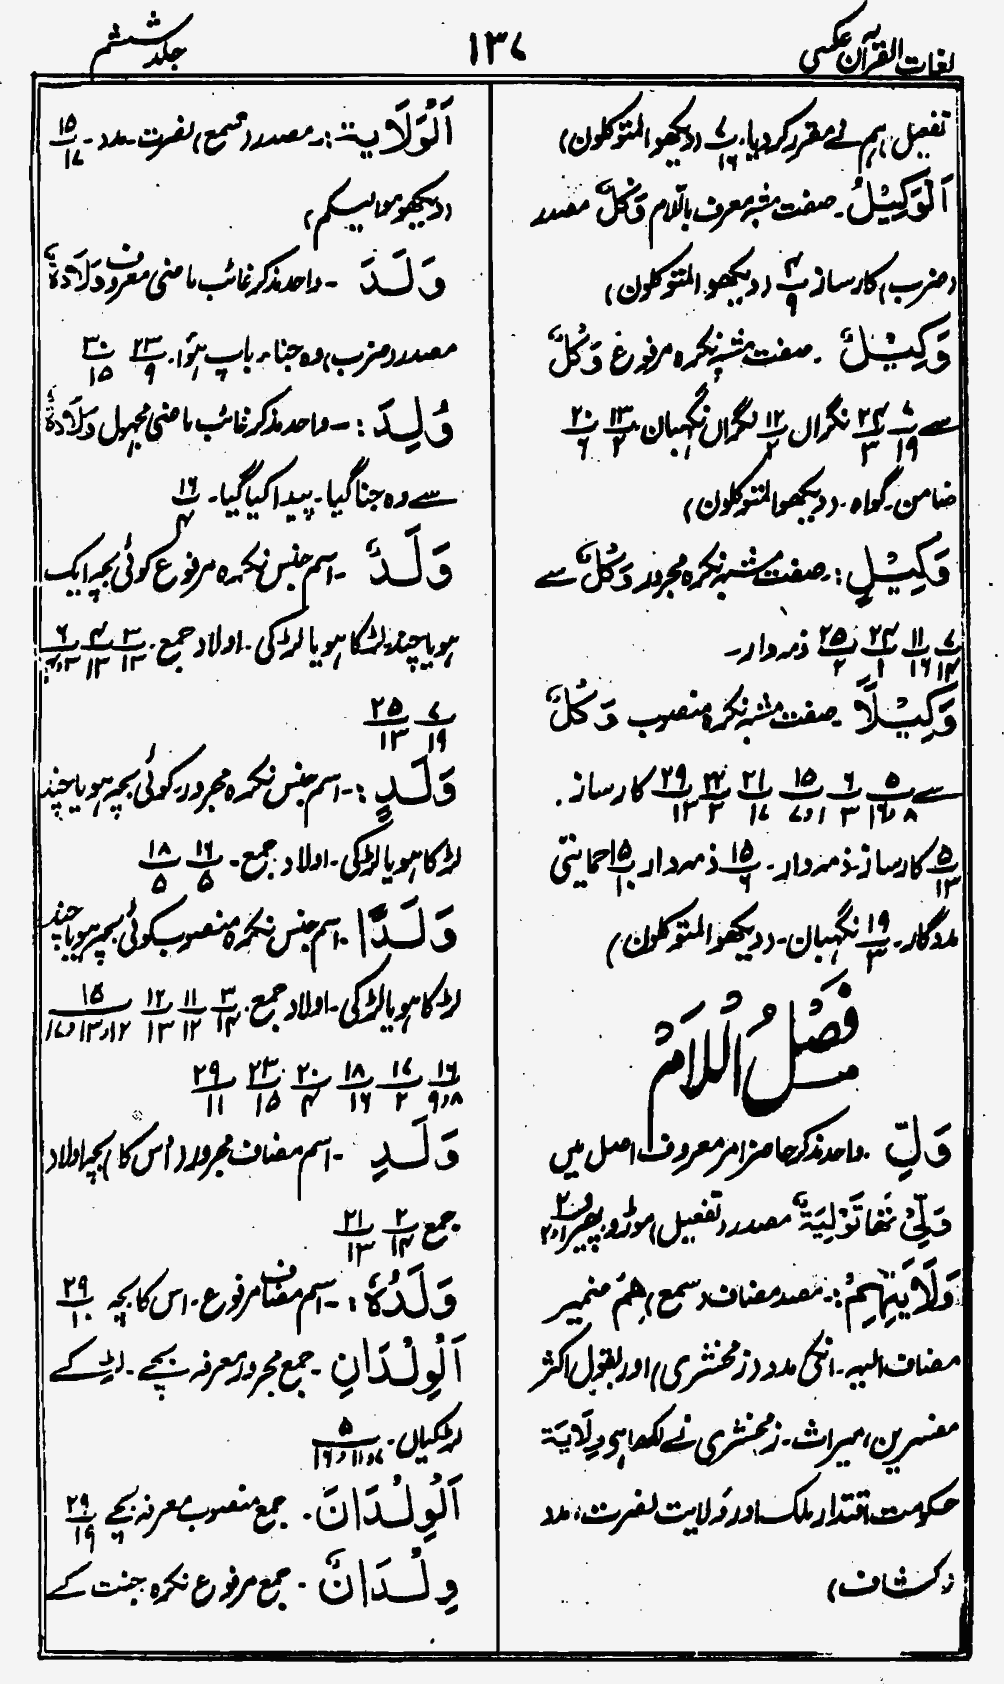 لغات القرآن عکسی
۱۳۷
جلد ششم
تفعیل) ہم نے مقرر کر دیا۔ ۷/۱۶ (دیکھو المتوکلون)
اَلْوَکِیْلُ۔ صفت مشبہ معرف باللام وَکْلٌ مصدر
(ضرب) کارساز ۴/۹ (دیکھو المتوکلون)
وَکِیْلٌ۔ صفت مشبہ نکرہ مرفوع وَکْلٌ
سے ۷/۱۹ ۲۴/۳ نگراں ۱۲/۲ نگراں نگہبان ۱۳/۲ ۲۰/۶
ضامن۔ گواہ۔ (دیکھو المتوکلون)
وَکِیْلٍ:۔ صفت مشبہ نکرہ مجرور وَکْلٌ سے
۷/۱۴ ۱۱/۱۶ ۲۴/۱ ۲۵/۲ ذمہ دار۔
وَکِیْلًا۔ صفت مشبہ نکرہ منصوب وَکْلٌ
سے ۵/۸و۱۶ ۶/۳ ۱۵/۱و۷ ۲۱/۱۷ ۲۲/۳ ۲۹/۱۳ کارساز۔
۵/۱۳ کارساز۔ ذمہ دار۔ ۱۵/۶ ذمہ دار ۱۵/۱۰ حمایتی
مددگار۔ ۱۹/۳ نگہبان۔ (دیکھو المتوکلون)
فَصْلُ اللَّامِ
وَلِّ۔ واحد مذکر حاضر امر معروف اصل میں
وَلِّیْ تھا تَوْلِیَۃٌ مصدر (تفعیل) موڑ دو۔ پھیر ۲۰/۱و۲
وَلَایَتِہِمْ:۔ مصدر مضاف (سمع) ھِمْ ضمیر
مضاف الیہ۔ انکی مدد (زمخشری) اور بقول اکثر
مفسرین، میراث۔ زمخشری نے لکھا ہی وِلَایَۃ
حکومت، اقتدار، ملک اور وَلایت نصرت، مدد
(کشاف)
اَلْوَلَایۃ:۔ مصدر (سمع) نصرت۔ مدد۔ ۱۵/۱۷
(دیکھو موالیکم)
وَلَدَ۔ واحد مذکر غائب ماضی معروف وِلَادَۃٌ
مصدر (ضرب) وہ جنا۔ باپ ہؤا۔ ۲۳/۹ ۳۰/۱۵
وُلِدَ:۔ واحد مذکر غائب ماضی مجہول وِلَادَۃٌ
سے وہ جنا گیا۔ پیدا کیا گیا۔ ۱۶/۴
وَلَدٌ۔ اسم جنس نکرہ مرفوع کوئی بچہ ایک
ہو یا چند، لڑکا ہو یا لڑکی۔ اولاد جمع۔ ۳/۱۳ ۴/۱۳ ۶/۳و۴
۷/۱۹ ۲۵/۱۳
وَلَدٍ:۔ اسم جنس نکرہ مجرور۔ کوئی بچہ ہو یا چند
لڑکا ہو یا لڑکی۔ اولاد جمع۔ ۱۶/۵ ۱۸/۵
وَلَدًا۔ اسم جنس نکرہ منصوب کوئی بچہ ہو یا چند
لڑکا ہو یا لڑکی۔ اولاد جمع۔ ۳/۱۴ ۱۱/۱۲ ۱۲/۱۳ ۱۵/۱۲و۱۳و۱۷
۱۶/۸و۹ ۱۷/۲ ۱۸/۱۶ ۲۰/۴ ۲۳/۱۵ ۲۹/۱۱
وَلَدِ۔ اسم مضاف مجرور (اس کا) بچہ اولاد
جمع ۲/۱۴ ۲۱/۱۳
وَلَدُہٗ:۔ اسم مضاف مرفوع۔ اس کا بچہ ۲۹/۱۰
اَلْوِلْدَانِ۔ جمع مجرور معرفہ بچے۔ لڑکے
لڑکیاں۔ ۵/۷و۱۱و۱۶
اَلْوِلْدَانَ۔ جمع منصوب معرفہ بچے ۲۹/۱۹
وِلْدَانٌ۔ جمع مرفوع نکرہ جنت کے